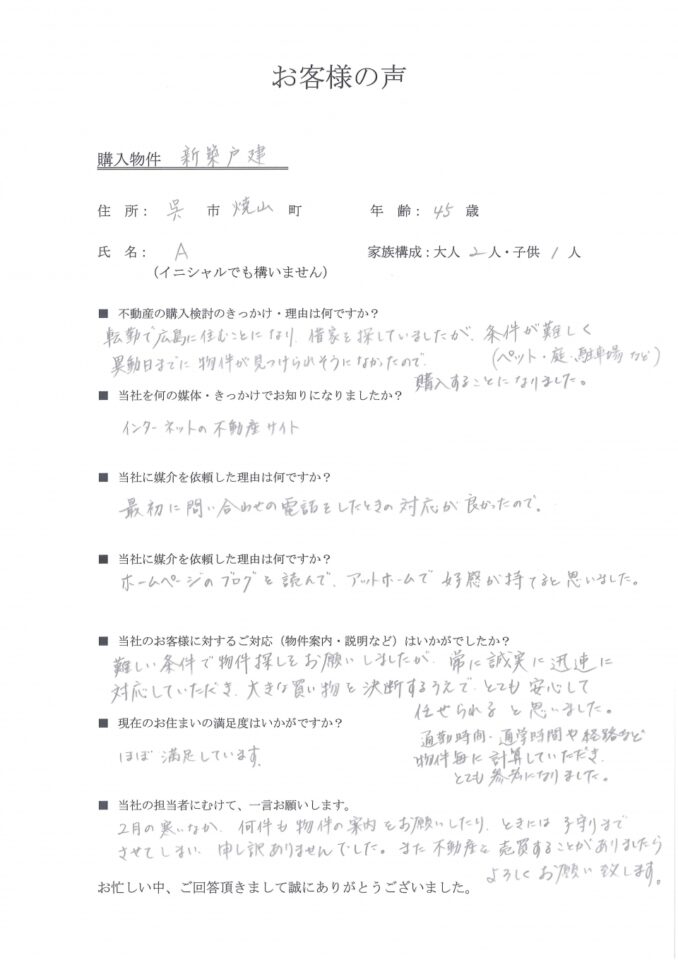 お客様の声
購入物件 新築戸建
住 所： 呉 市 焼山 町 年 齢： 45 歳
氏 名： A 家族構成：大人 2 人・子供 1 人
（イニシャルでも構いません）
■ 不動産の購入検討のきっかけ・理由は何ですか？
転勤で広島に住むことになり、借家を探していましたが、条件が難しく
（ペット・庭、駐車場 など）
異動日までに物件が見つけられそうになかったので、
購入することになりました。
■ 当社を何の媒体・きっかけでお知りになりましたか？
インターネットの不動産サイト
■ 当社に媒介を依頼した理由は何ですか？
最初に問い合わせの電話をしたときの対応が良かったので。
■ 当社に媒介を依頼した理由は何ですか？
ホームページのブログを読んで、アットホームで好感が持てると思いました。
■ 当社のお客様に対するご対応（物件案内・説明など）はいかがでしたか？
難しい条件で物件探しをお願いしましたが、常に誠実に迅速に
対応していただき、大きな買い物を決断するうえで、とても安心して
任せられると思いました。
通勤時間・通学時間や経路など
物件毎に計算していただき、
とても参考になりました。
■ 現在のお住まいの満足度はいかがですか？
ほぼ満足しています。
■ 当社の担当者にむけて、一言お願いします。
2月の寒いなか、何件も物件の案内をお願いしたり、ときには子守りまで
させてしまい、申し訳ありませんでした。また不動産を売買することがありましたら
よろしくお願い致します。
お忙しい中、ご回答頂きまして誠にありがとうございました。